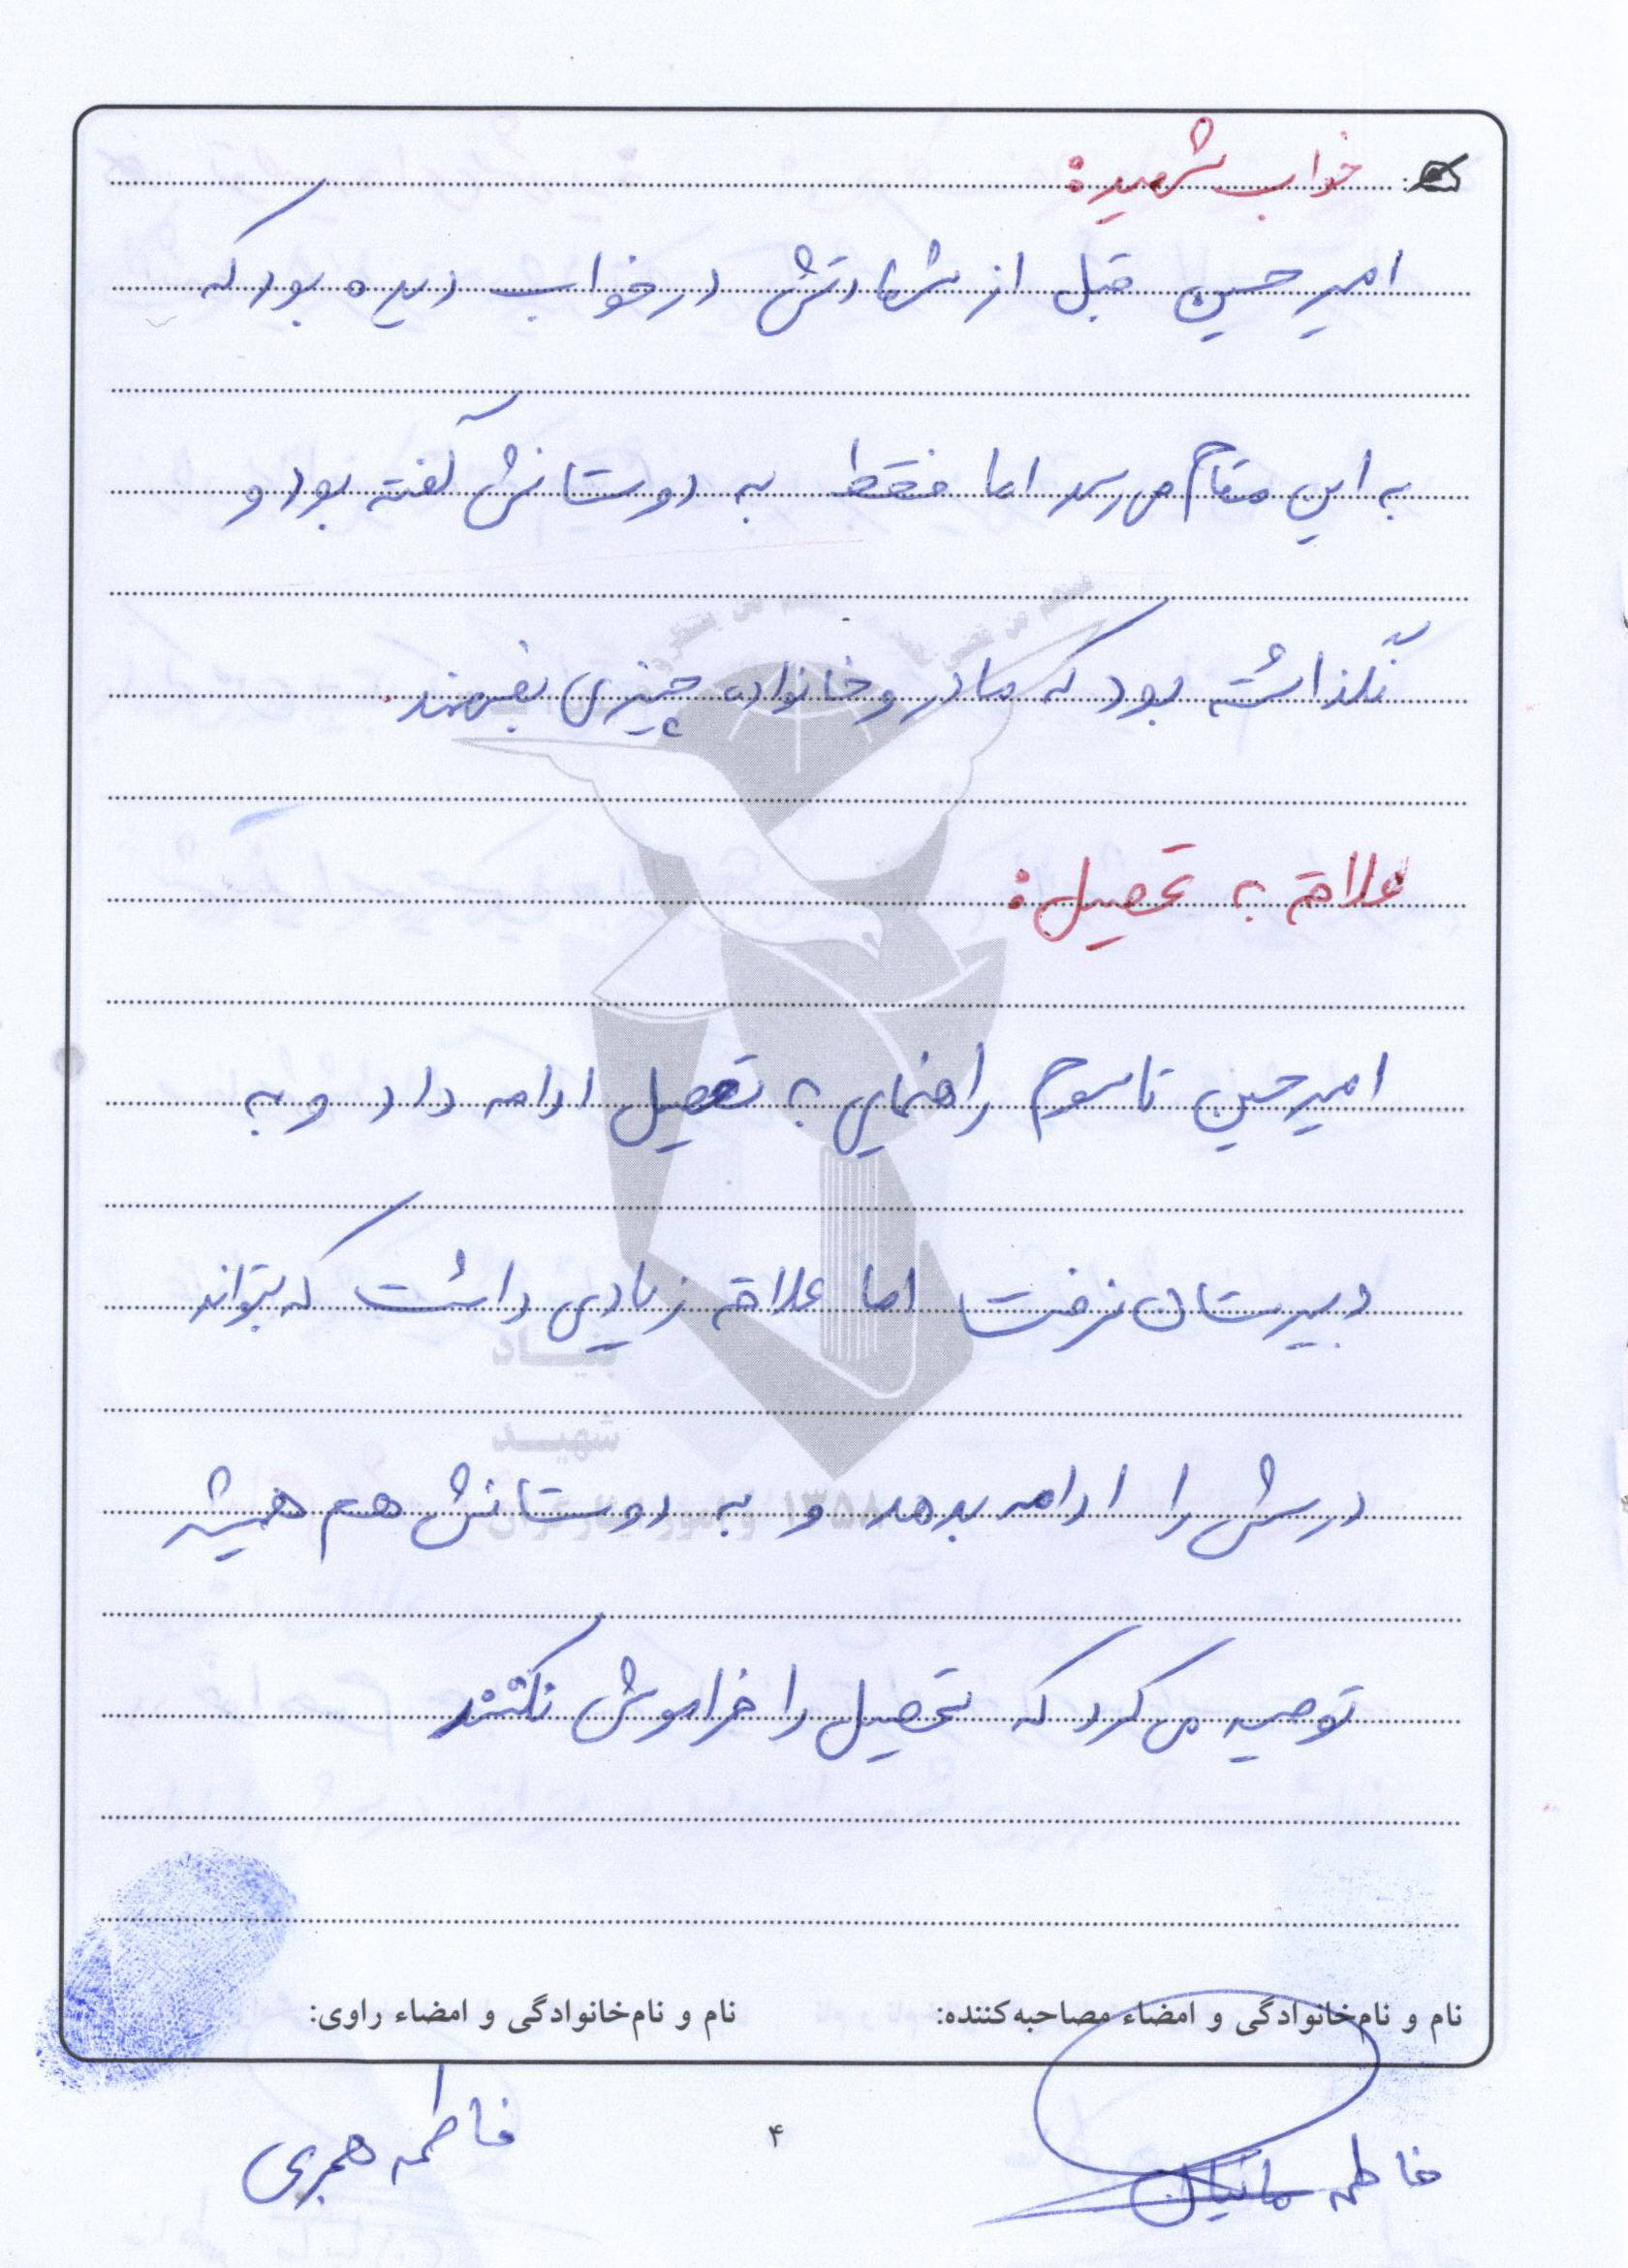 خواب شهید:
امیرحسین قبل از شهادتش در خواب دیده بود که
به این مقام می رسد اما فقط به دوستانش گفته بود و
نگذاشته بود که مادر و خانواده چیزی بفهمند.
علاقه به تحصیل:
امیرحسین تا سوم راهنمایی به تحصیل ادامه داد و به
دبیرستان نرفت اما علاقه زیادی داشت که بتواند
درسش را ادامه بدهد و به دوستانش هم همیشه
توصیه می کرد که تحصیل را فراموش نکنند
بنیاد
شهید
۱۳۵۸ و امور ایثارگران
نام و نام‌خانوادگی و امضاء مصاحبه‌کننده: نام و نام‌خانوادگی و امضاء راوی:
فاطمه فاطمه هجری
۴